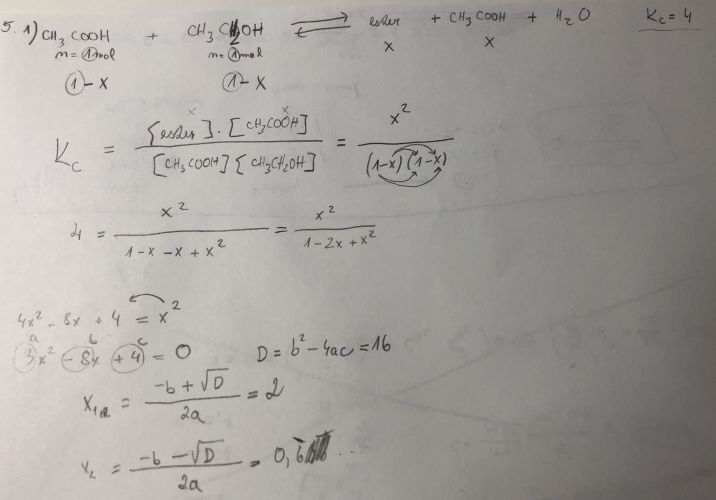 5. 1) CH3 COOH + CH3 CH2OH ⇌ ester + CH3 COOH + H2O Kc = 4
n = 1 mol n = 1 mol x x
1 - x 1 - x
Kc = [ester] · [CH3COOH] / [CH3COOH] [CH3CH2OH] = x² / (1-x) (1-x)
x x
4 = x² / 1 - x - x + x² = x² / 1 - 2x + x²
4x² - 8x + 4 = x²
a b c
3x² - 8x + 4 = 0 D = b² - 4ac = 16
x1 = -b + √D / 2a = 2
x2 = -b - √D / 2a = 0,6 ...